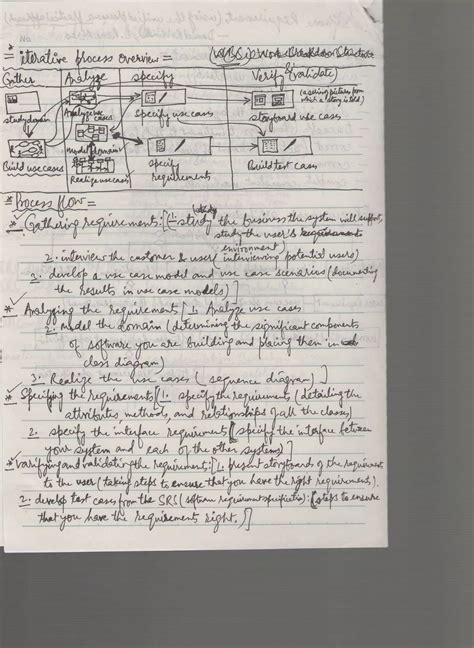 * iterative process overview = (WBS:) Work Breakdown Structure
Gather Analyze specify Verify & (validate)
study domain Analyze use cases specify use cases storyboard use cases
(a seeing pictures from which a story is told)
Build use cases model domain specify requirements Build test cases
Realize use cases
* Process flow =
* Gathering requirements: [1- study the business the system will support,
study the user's environment)
2. interview the customer & user (interviewing potential users)
2. develop a use case model and use case scenarios (documenting
the results in use case models)]
* Analyzing the requirement [1. Analyze use cases
2. model the domain (determining the significant components
of software you are building and placing them in
class diagram)
3. Realize the use cases (sequence diagram)]
* Specifying the requirements [1. specify the requirements (detailing the
attributes, methods, and relationships of all the classes)
2. specify the interface requirements (specify the interface between
your system and each of the other systems)]
* varifying and validating the requirements: [1. present storyboards of the requirements
to the user (taking steps to ensure that you have the right requirements).
2. develop test cases from the SRS (software requirement specification): (steps to ensure
that you have the requirements right.)]